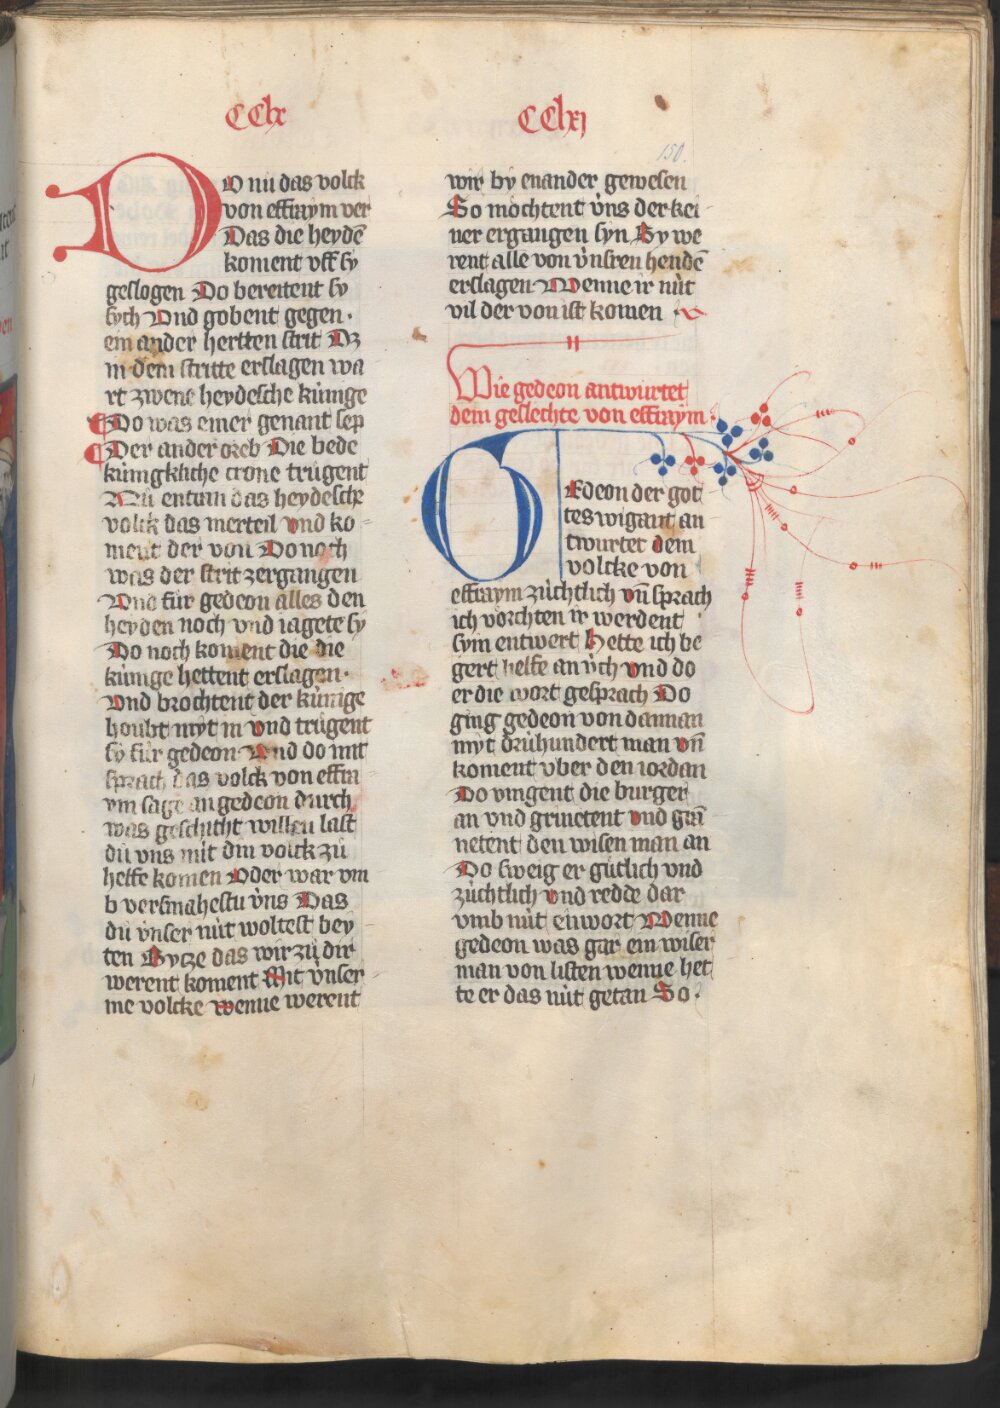 CClx
DO nu das volck
von effraym ver
Das die heydē
koment vff sy
geslogen Do bereitent sy
sych Vnd gobent gegen
em ander hertten strit Dz
in dem stritte erslagen wa
rt zwene heydesche künige
Do was einer genant sep
Der ander oreb Die bede
künigkliche crone trůgent
Nu entran das heydesche
volck das merteil vnd ko
ment der von Do noch
was der strit zergangen
Vnd für gedeon alles den
heyden noch vnd iagete sy
Do noch koment die die
künige hettent erslagen
Vnd brochtent der künige
houbt myt in vnd trůgent
sy für gedeon Vnd do mit
sprach das volck von effra
ym sage an gedeon durch
was geschicht willen last
du vns mit din volck zů
helfe komen Oder war vm
b versmahestu v̇ns Das
du v̇nser nüt woltest bey
ten Bytze das wir zů dir
werent koment Mit vnser
me volcke wenne werent
CClxj
150.
wir by enander gewesen
So mochtent v̇ns der kei
ner ergangen syn Sy we
rent alle von v̇nsren hendē
erslagen Wenne ir nüt
vil der von ist komen
Wie gedeon antwurtet
dem geslechte von effraym
GEdeon der got
tes wigant an
twurtet dem
volcke von
effraym zůchtlich vn̄ sprach
ich vörchten ir werdent
sym entwert hette ich be
gert helfe an v̇ch vnd do
er die wort gesprach Do
ging gedeon von dannan
myt drühundert man vn̄
koment vber den iordan
Do vingent die burger
an vnd grinetent vnd grā
netent den wisen man an
Do sweig er gůtlich vnd
züchtlich vnd redde dar
vmb nüt ein wort Wenne
gedeon was gar ein wiser
man von listen wenne het
te er das nüt getan So